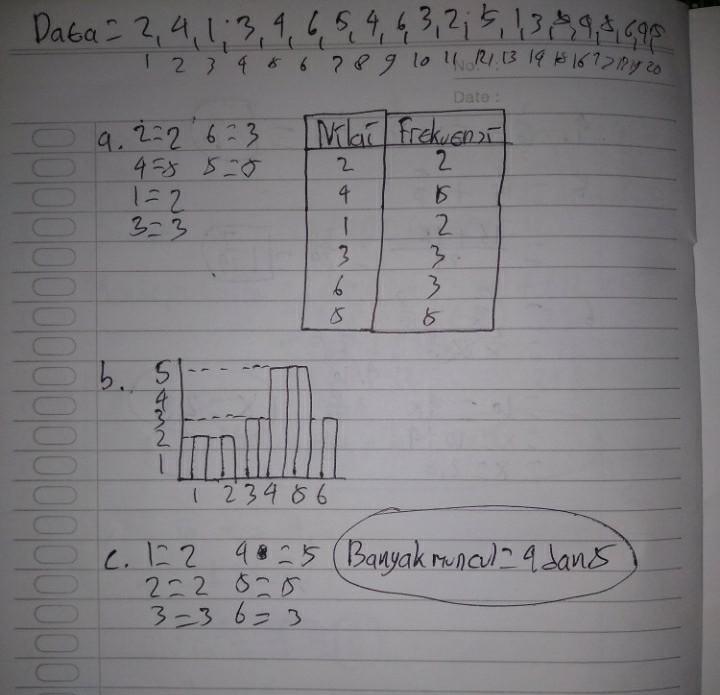 Data = 2, 4, 1, 3, 4, 6, 5, 4, 6, 3, 2, 5, 1, 3, 5, 4, 5, 6, 4, 5
1 2 3 4 5 6 7 8 9 10 11 12 13 14 15 16 17 18 19 20
No. :
Date :
a. 2=2 6=3
4=5 5=5
1=2
3=3
Nilai Frekuensi
2 2
4 5
1 2
3 3
6 3
5 5
b. 5
4
3
2
1
1 2 3 4 5 6
c. 1=2 4=5
2=2 5=5
3=3 6=3
Banyak muncul = 4 dan 5